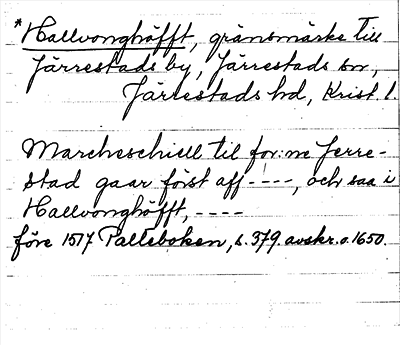 *Hallvonghöfft, gränsmärke till
Järrestads by, Järrestads sn,
Järrestads hd, Krist. l.
Marcheschiell til for:ne Jerre-
stad gaar först aff ----, och saa i
Hallvonghöfft, ----
före 1517 Palleboken, s. 379. avskr. o. 1650.